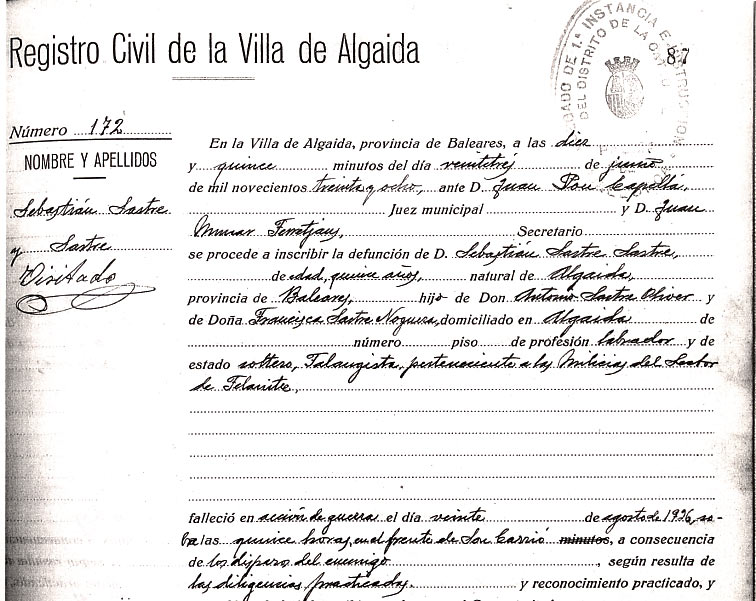 Registro Civil de la Villa de Algaida
87
Número 172
NOMBRE Y APELLIDOS
Sebastián Sastre
y Sastre
Visitado
JUZGADO DE 1.ª INSTANCIA E INSTRUCCION
DEL DISTRITO DE LA
En la Villa de Algaida, provincia de Baleares, a las diez
y quince minutos del día veintitrés de junio
de mil novecientos treinta y ocho, ante D. Juan Pou Capellá,
Juez municipal y D. Juan
Munar Ferretjans, Secretario
se procede a inscribir la defunción de D. Sebastián Sastre Sastre,
de edad, quince años, natural de Algaida,
provincia de Baleares, hijo de Don Antonio Sastre Oliver y
de Doña Francisca Sastre Noguera, domiciliado en Algaida de
número piso de profesión labrador y de
estado soltero, Falangista, perteneciente a las Milicias del Sector
de Felanitx,
falleció en acción de guerra el día veinte de agosto de 1936, so-
bre las quince horas, en el frente de Son Carrió minutos, a consecuencia
de los disparos del enemigo, según resulta de
las diligencias practicadas. y reconocimiento practicado, y